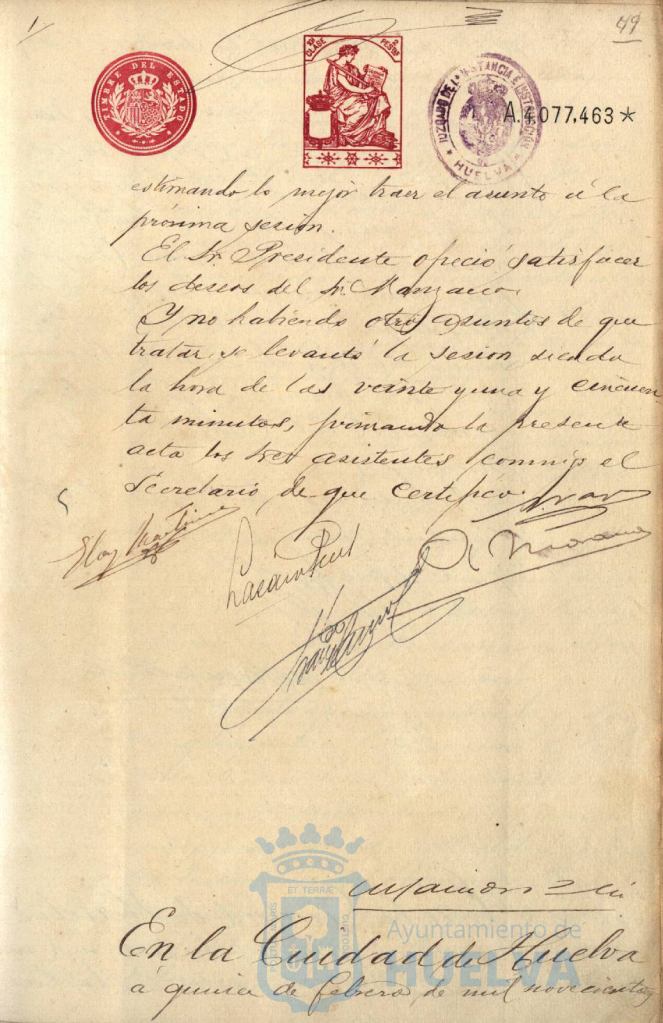 49
TIMBRE DEL ESTADO
CLASE
PESETAS
JUZGADO DE 1ª INSTANCIA E INSTRUCCION
HUELVA
A.4.077,463*
estimando lo mejor traer el asunto á la
próxima sesión.
El Sr. Presidente ofreció satisfacer
los deseos del Sr.
Y no habiendo otros asuntos de que
tratar, se levantó la sesion siendo
la hora de las veinte y una y cincuen
ta minutos, firmando la presente
acta los Sres asistentes conmigo el
Secretario, de que certifico.
Eloy Martin
En la Ciudad de Huelva
á quince de febrero de mil novecientos
ET TERRAE
Ayuntamiento de
HUELVA